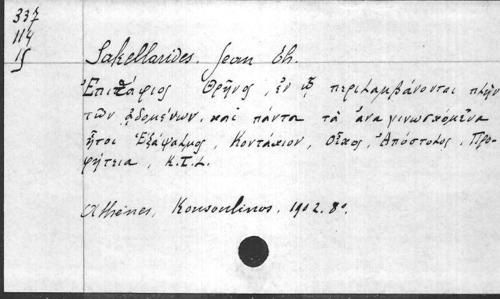 337
114
15
Sakellarides, Jean Th.
Ἐπιτάφιος Θρῆνος, ἐν ᾧ περιλαμβάνονται πλὴν
τῶν ᾀδομένων, καὶ πάντα τὰ ἀναγινωσκόμενα
ἤτοι Ἑξάψαλμος, Κοντάκιον, Οἶκος, Ἀπόστολος, Προ-
φητεία, κ.τ.λ.
Athènes, Kousoulinos, 1902. 8º.